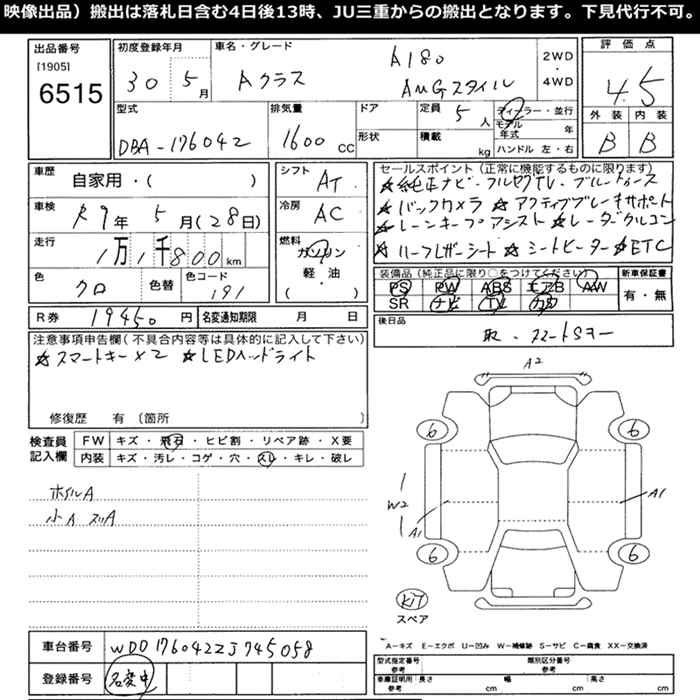 映像出品）搬出は落札日含む4日後13時、JU三重からの搬出となります。下見代行不可。
出品番号
[1905]
6515
初度登録年月
30 5月
車名・グレード
Aクラス
A180
AMGスタイル
2WD
・
4WD
評価点
4.5
外装 内装
B B
型式
DBA-176042
排気量
1600 CC
ドア
形状
定員 5 人
積載 kg
ディーラー・並行
モデル年式 年
ハンドル 左・右
車歴
自家用・( )
車検
R9年 5月(28日)
走行
1万1千800km
色
クロ
色替
色コード
191
シフト
AT
冷房
AC
燃料
ガソリン
軽・油
( ・ )
セールスポイント（正常に機能するものに限ります）
★純正ナビ・フルセグTV・ブルートゥース
★バックカメラ ★アクティブブレーキサポート
★レーンキープアシスト ★レーダークルコン
★ハーフレザーシート ★シートヒーター ★ETC
装備品（純正品に限り○をつけてください）
PS PW ABS エアB AW
SR ナビ TV カワ
新車保証書
有・無
R券 19450 円
名変通知期限 月 日
後日品
取・スマートSキー
注意事項申告欄（不具合内容等は具体的に記入して下さい）
★スマートキー×2 ★LEDヘッドライト
修復歴 有（箇所 ）
検査員記入欄
FW キズ・飛石・ヒビ割・リペア跡・X要
内装 キズ・汚レ・コゲ・穴・スレ・キレ・破レ
ホイルA
小A スリA
A2
6 6
W2
A1
A1
6 6
KIT
スペア
A―キズ E―エクボ U―凹み W―補修跡 S―サビ C―腐食 XX―交換済
車台番号
WDD1760422J745058
登録番号
名変中
型式指定番号
参考
類別区分番号
参考
車庫証明用
参考
長さ cm
幅 cm
高さ cm